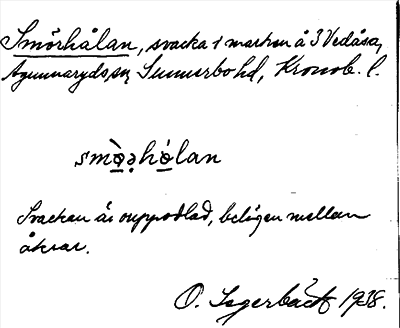 Smörhålan, svacka i marken å 3 Vedåsa,
Agunnaryds sn, Sunnerbo hd, Kronob. l.
smö̀ǝhólan
Svackan är ouppodlad, belägen mellan
åkrar.
O. Lagerbäck 1938.